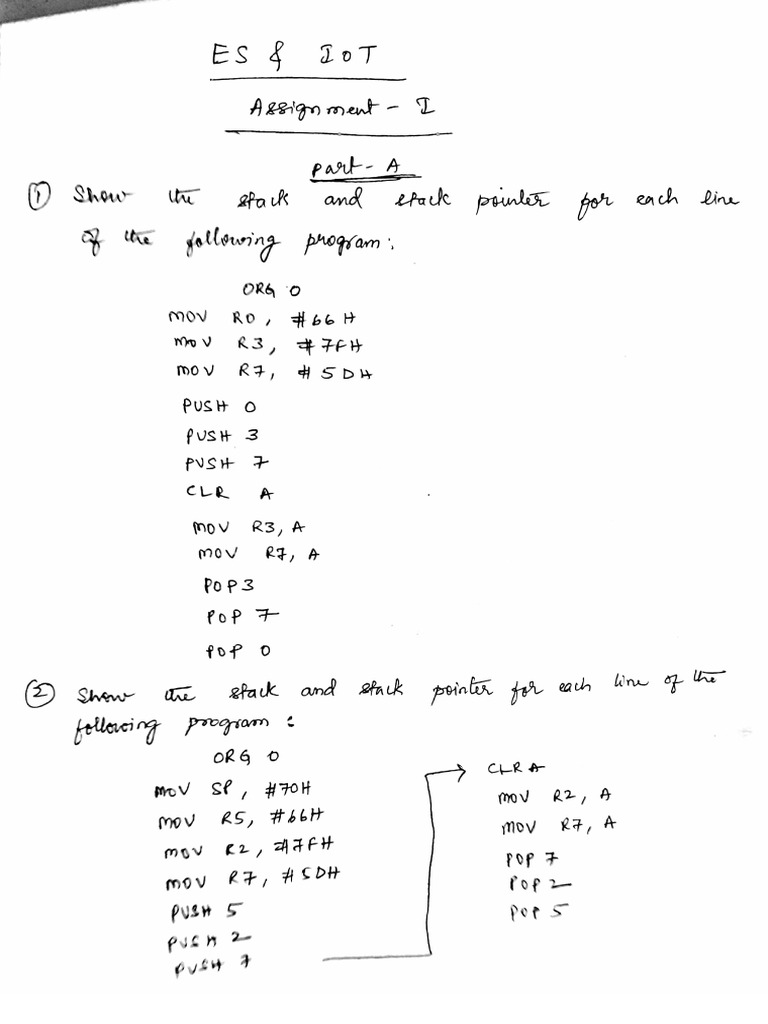 ES & IOT
Assignment - I
Part - A
① Show the stack and stack pointer for each line
of the following program:
ORG 0
MOV R0, #66H
MOV R3, #7FH
MOV R7, #5DH
PUSH 0
PUSH 3
PUSH 7
CLR A
MOV R3, A
MOV R7, A
POP 3
POP 7
POP 0
② Show the stack and stack pointer for each line of the
following program:
ORG 0
MOV SP, #70H
MOV R5, #66H
MOV R2, #7FH
MOV R7, #5DH
PUSH 5
PUSH 2
PUSH 7
CLR A
MOV R2, A
MOV R7, A
POP 7
POP 2
POP 5